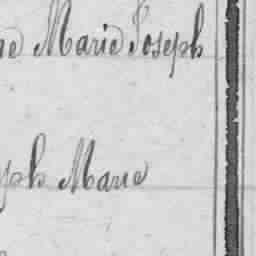 ne Marie Joseph
ph Marie